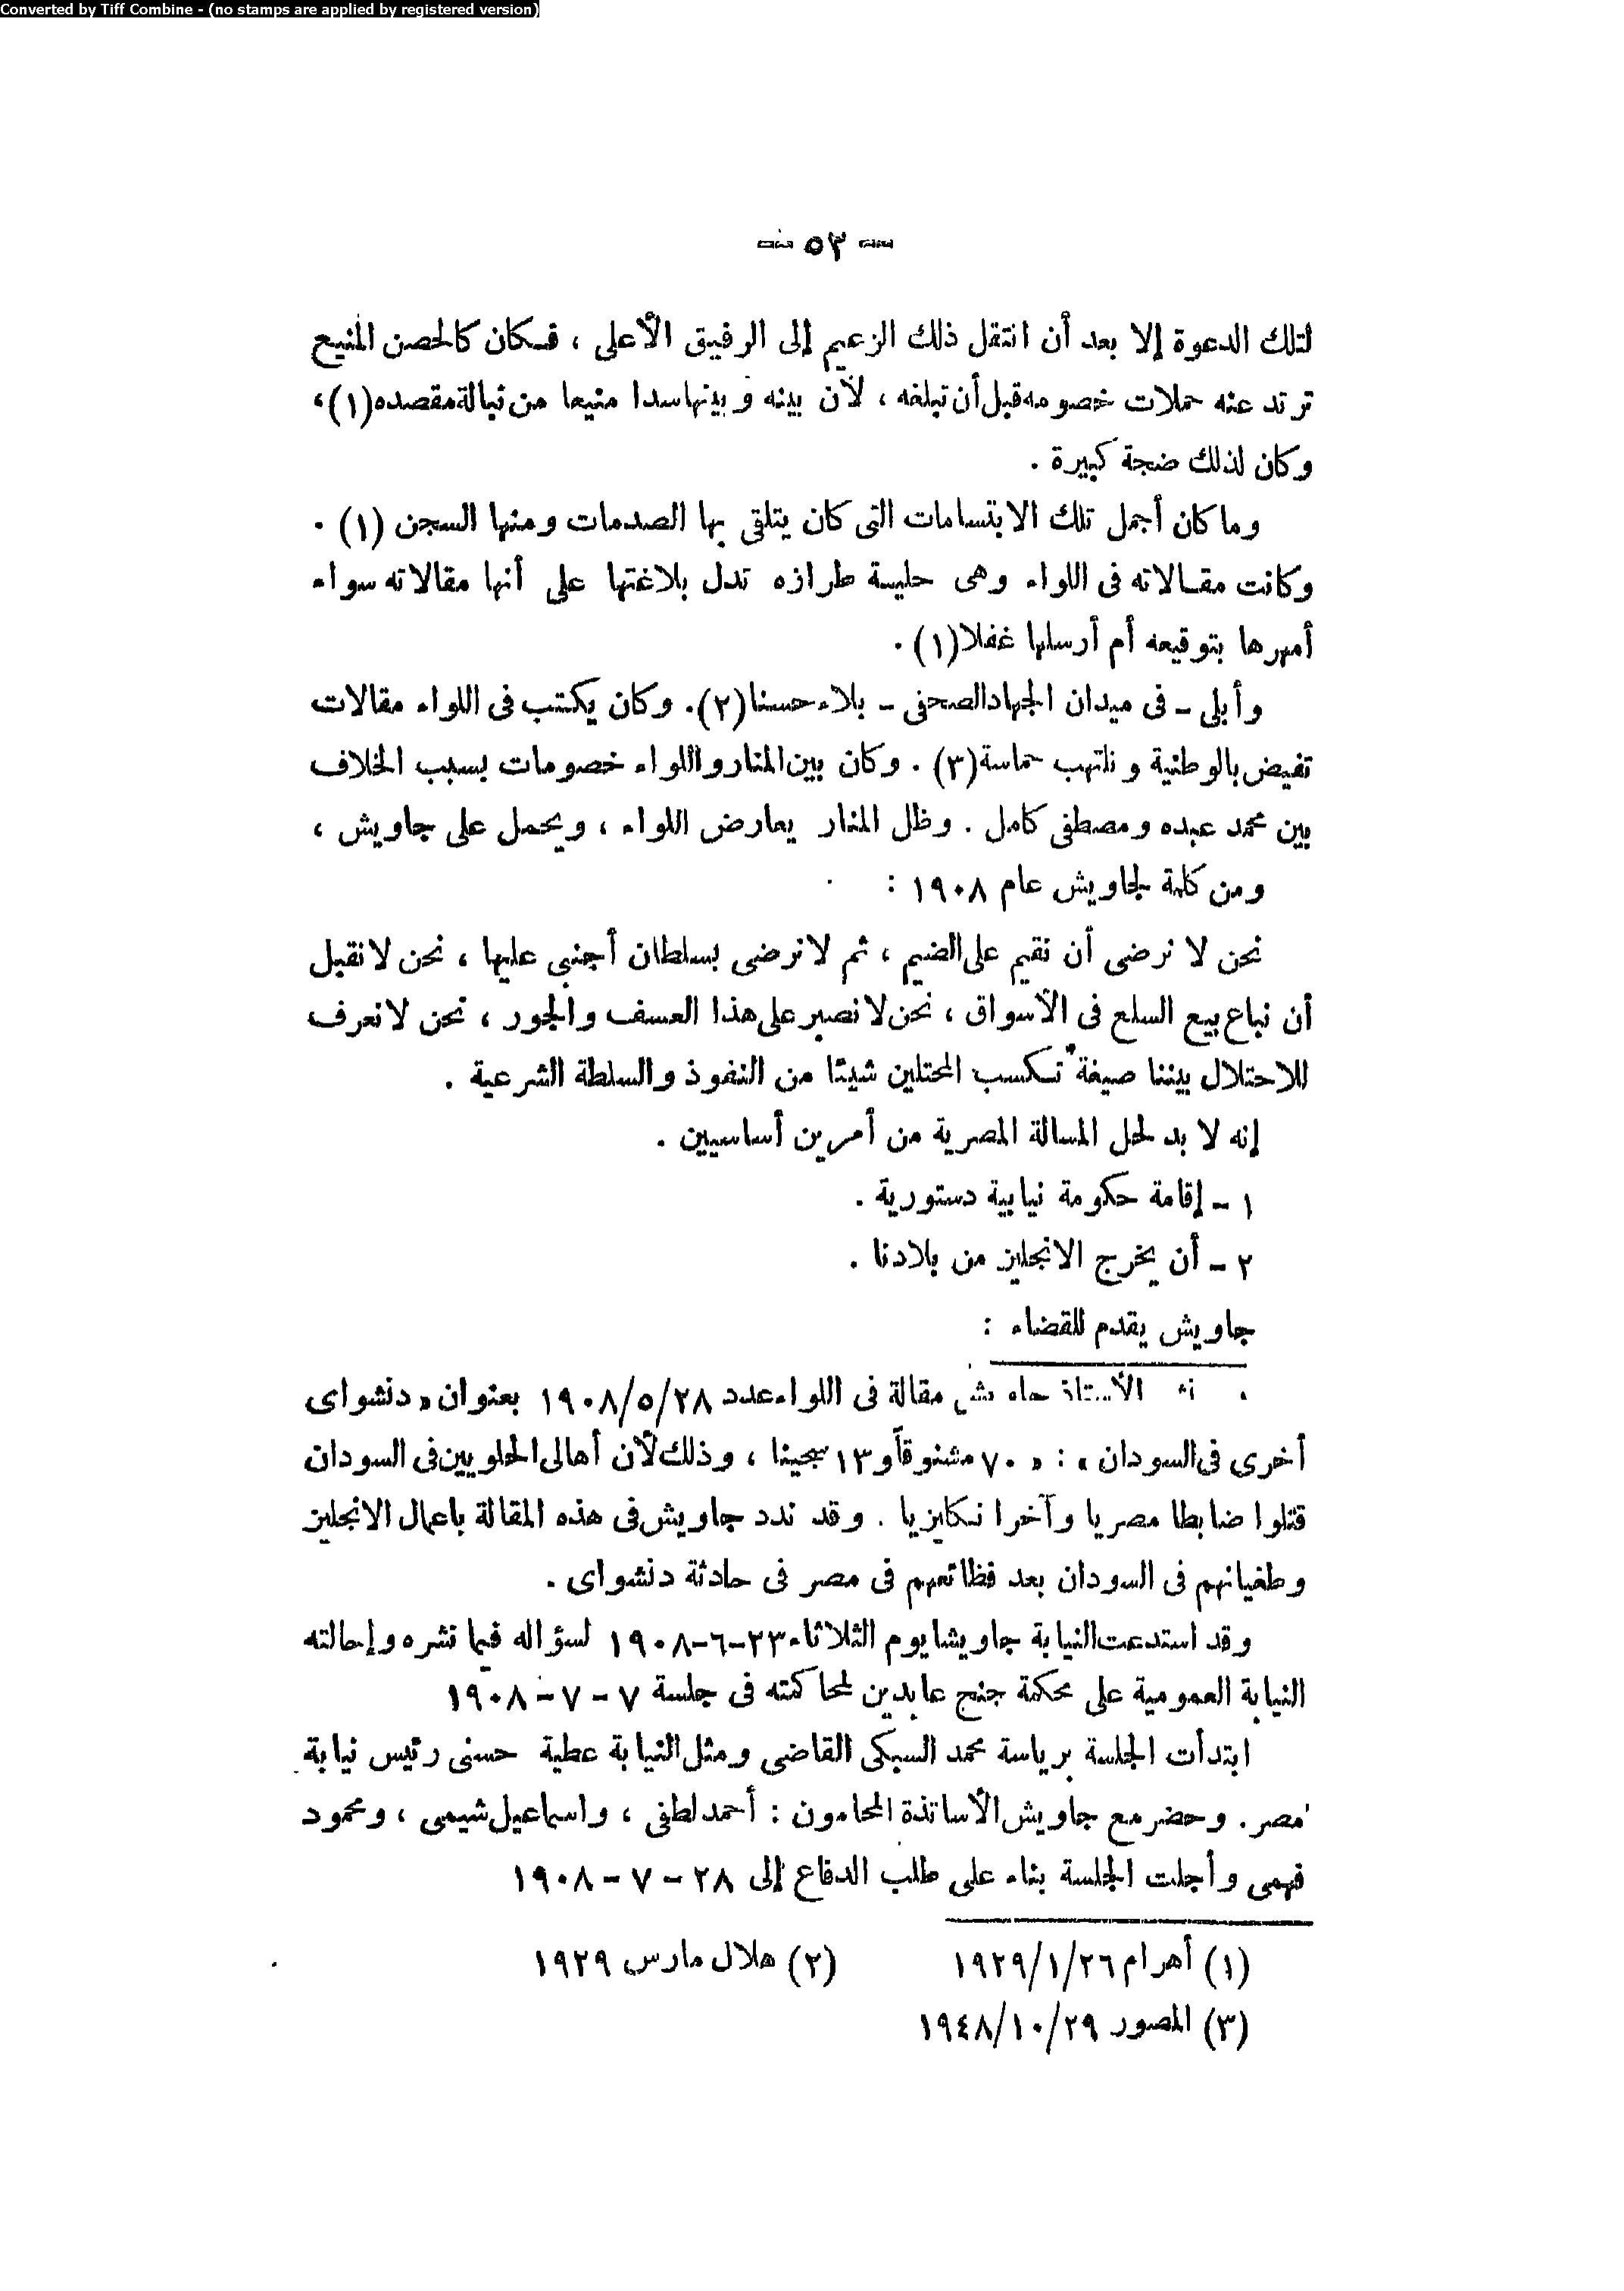 Converted by Tiff Combine - (no stamps are applied by registered version)
— ٥٣ —
لتلك الدعوة إلا بعد أن انتقل ذلك الزعيم إلى الرفيق الأعلى ، فكان كالحصن المنيع
ترتد عنه حملات خصومه قبل أن تبلغه ، لأن بينه وبينها سدا منيعا من نبالة مقصده (١) ،
وكان لذلك ضجة كبيرة .
وما كان أجمل تلك الابتسامات التى كان يتلقى بها الصدمات ومنها السجن (١) .
وكانت مقالاته فى اللواء وهى حلية طرازه تدل بلاغتها على أنها مقالاته سواء
أمهرها بتوقيعه أم أرسلها غفلا (١) .
وأبلى - فى ميدان الجهاد الصحفى - بلاء حسنا (٢) . وكان يكتب فى اللواء مقالات
تفيض بالوطنية وتلتهب حماسة (٣) . وكان بين المنار واللواء خصومات بسبب الخلاف
بين محمد عبده ومصطفى كامل . وظل المنار يعارض اللواء ، ويحمل على جاويش ،
ومن كلمة لجاويش عام ١٩٠٨ :
نحن لا نرضى أن نقيم على الضيم ، ثم لا نرضى بسلطان أجنبى علينا ، نحن لا نقبل
أن نباع بيع السلع فى الأسواق ، نحن لا نصبر على هذا العسف والجور ، نحن لا نعرف
للاحتلال بيننا صيغة تكسب المحتلين شيئا من النفوذ والسلطة الشرعية .
إنه لا بد لحل المسالة المصرية من أمرين أساسيين .
١ - إقامة حكومة نيابية دستورية .
٢ - أن يخرج الانجليز من بلادنا .
جاويش يقدم للقضاء :
الأستاذ جاويش مقالة فى اللواء عدد ١٩٠٨/٥/٢٨ بعنوان « دنشواى
أخرى فى السودان » : « ٧٠ مشنوقاً و ١٣ سجينا ، وذلك لأن أهالى الحلويين فى السودان
قتلوا ضابطا مصريا وآخر انكليزيا . وقد ندد جاويش فى هذه المقالة باعمال الانجليز
وطغيانهم فى السودان بعد فظائعهم فى مصر فى حادثة دنشواى .
وقد استدعت النيابة جاويشا يوم الثلاثاء ٢٣-٦-١٩٠٨ لسؤاله فيما نشره وإحالته
النيابة العمومية على محكمة جنح عابدين لمحاكمته فى جلسة ٧ - ٧ - ١٩٠٨
ابتدأت الجلسة برياسة محمد السبكى القاضى ومثل النيابة عطية حسنى رئيس نيابة
مصر . وحضر مع جاويش الأساتذة المحامون : أحمد لطفى ، واسماعيل شيمى ، ومحمود
فهمى وأجلت الجلسة بناء على طلب الدفاع إلى ٢٨ - ٧ - ١٩٠٨
(١) أهرام ١٩٢٩/١/٢٦ (٢) هلال مارس ١٩٢٩
(٣) المصور ١٩٤٨/١٠/٢٩